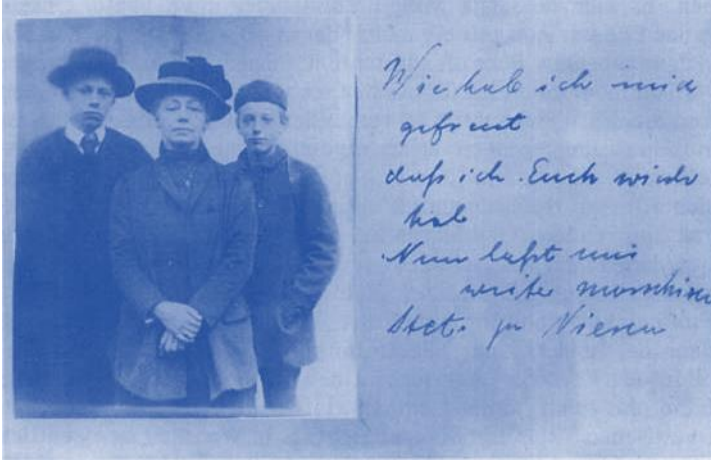 Wie hab ich mich
gefreut
daß ich Euch wieder
hab
Nun laßt uns
weiter marschieren
Stets zu Vieren